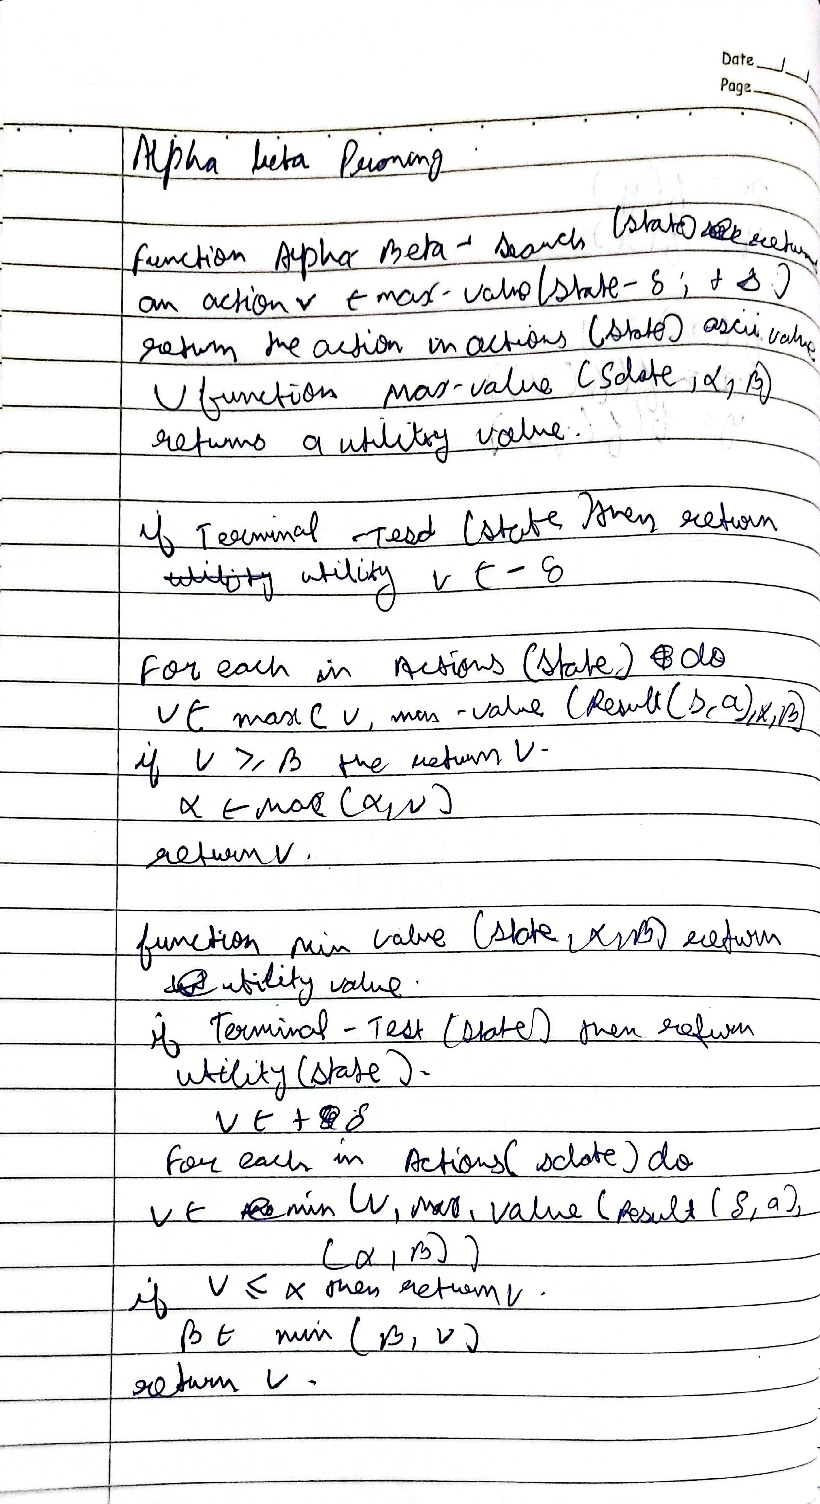 Date
Page
Alpha beta Pruning
function Alpha Beta - Search (state) return
an action v ← max-value (state - δ, + δ)
return the action in actions (state) ascii value
V function max-value (Sdate, α, β)
returns a utility value.
if Terminal - Tesd (state) then return
utility v ← - δ
For each in Actions (state) do
V ← max ( v, max - value (Result (s, a), α, β)
if V ≥ β the return V.
α ← max (α, v)
return v.
function min value (state, α, β) return
utility value.
if Terminal - Test (state) then return
utility (state).
V ← + δ
For each in Actions( sdate) do
V ← min (v, max, value (Result (s, a),
(α, β))
if V ≤ α then return v.
β ← min (β, v)
return v.